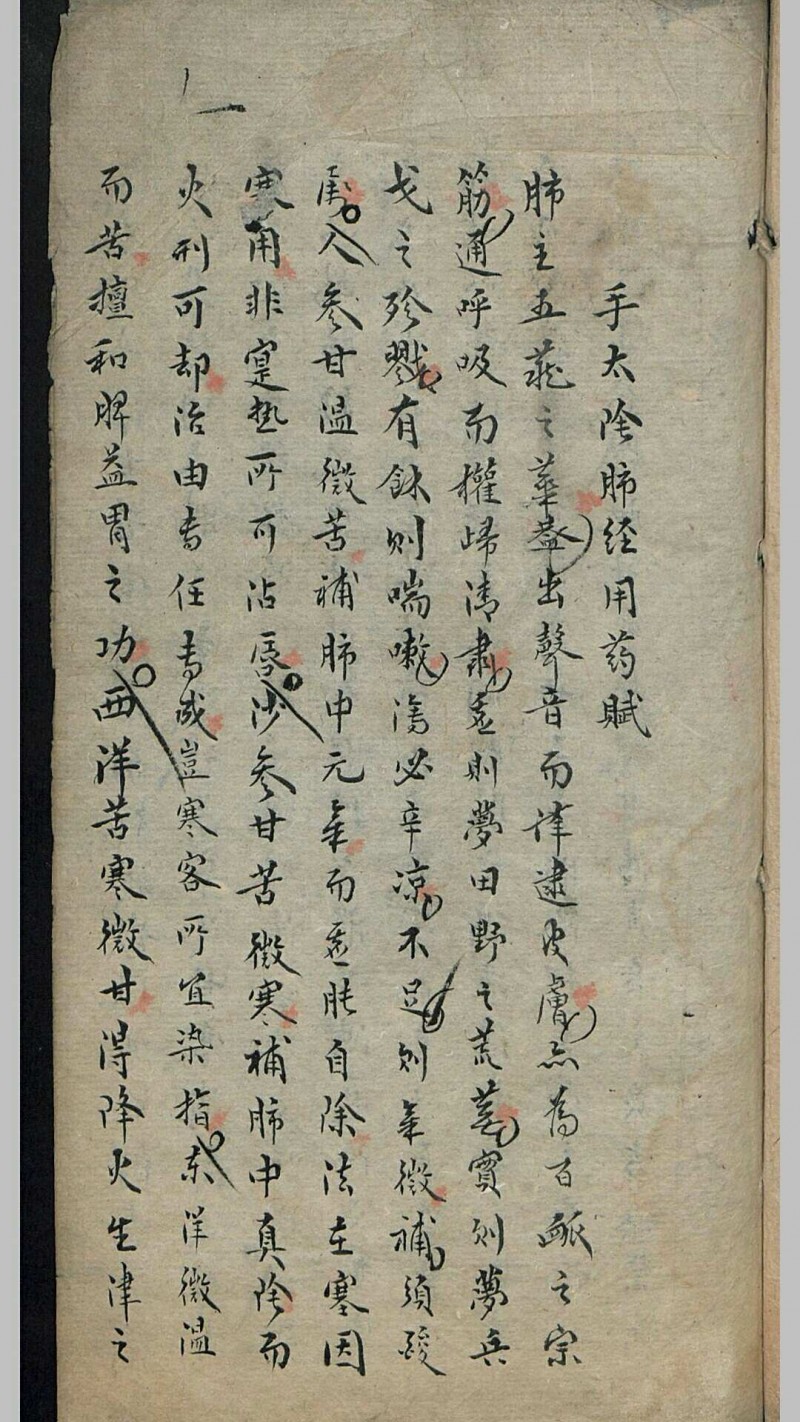 手太陰肺经用药賦
肺主五蔵之華葢出聲音而律逮皮膚亦為百脈之宗
筋通呼吸而權歸清肅虚則夢田野之荒蕪實則夢兵
戈之殄戮有餘則喘嗽瀉必辛凉不足則氣微補須酸
人参甘温微苦補肺中元氣而虚自除法在寒因
寒用非寔热所可沾唇沙参甘苦微寒補肺中真陰而
火刑可却治由専任専成豈寒客所宜染指东洋微温
而苦擅和脾益胃之功西洋苦寒微甘得降火生津之